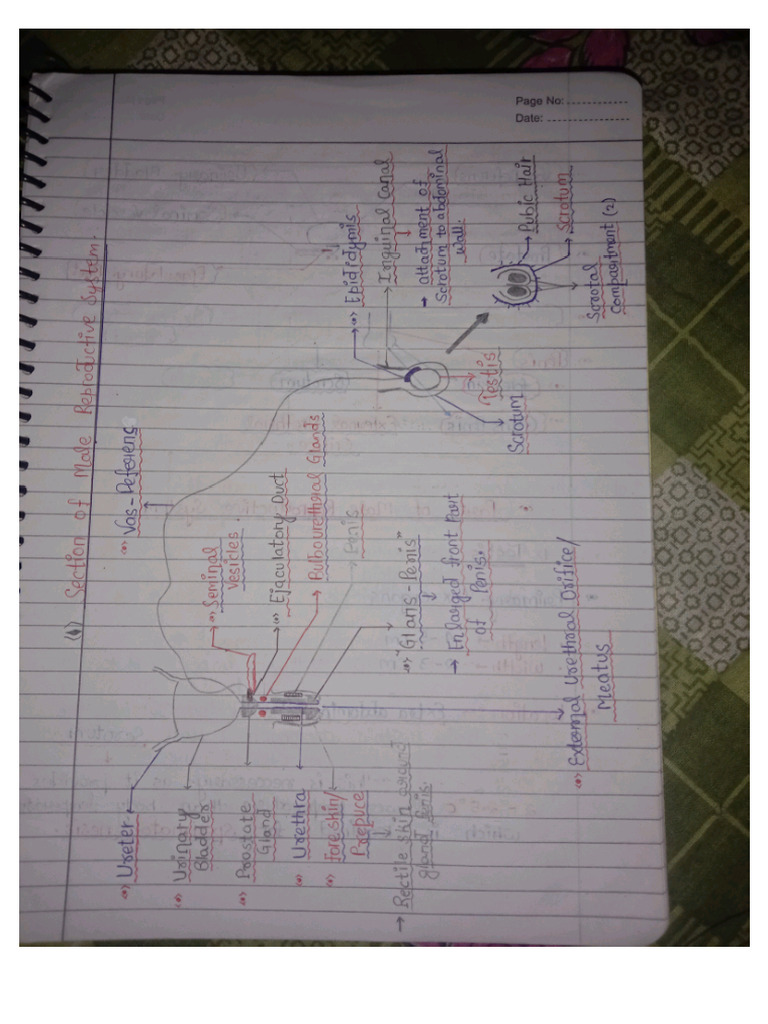 Page No:
Date:
(4) Section of Male Reproductive System.
Vas-Deferens
Seminal
Vesicles.
Ejaculatory Duct
Bulbourethral Glands
Penis
"Glans-Penis"
→ Enlarged front part
of Penis.
External Urethral Orifice/
Meatus
Epididymis
Inguinal Canal
→ attachment of
Scrotum to abdominal
wall.
Testis
Scrotum
Pubic Hair
Scrotum
Scrotal
Compartment (2)
Ureter
Urinary
Bladder
Prostate
Gland
Urethra
foreskin/
Prepuce
→ Rectile skin around
gland penis.